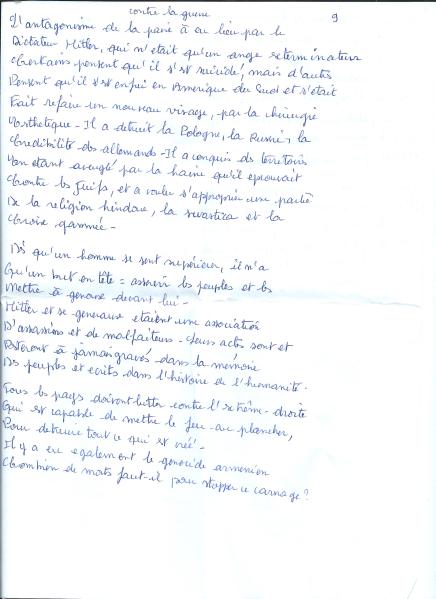 contre la guerre
9
L'antagonisme de la paix à eu lieu par le
Dictateur Hitler, qui n'était qu'un ange exterminateur
Certains pensent qu'il s'est suicidé, mais d'autres
Pensent qu'il s'est enfui en Amerique du Sud et s'était
Fait refaire un nouveau visage, par la chirurgie
Esthetique - Il a detruit la Pologne, la Russie, la
Credibilité des allemands - Il a conquis des territoires
En etant aveuglé par la haine qu'il eprouvait
Contre les Juifs, et a voulu s'approprier une partie
De la religion hindoue, la swastica et la
Croix gammée -
Dès qu'un homme se sent supérieur, il n'a
Qu'un but en tête = asservir les peuples et les
Mettre à genoux devant lui -
Hitler et ses generaux etaient une association
D'assassins et de malfaiteurs - Leurs actes sont et
Resteront à jamais gravés dans la mémoire
Des peuples et ecrits dans l'histoire de l'humanité.
Tous les pays doivent lutter contre l'extrême-droite
Qui est capable de mettre le feu au plancher,
Pour detruire tout ce qui est créé -
Il y a eu egalement le genocide armenien
Combien de morts faut-il pour stopper ce carnage ?